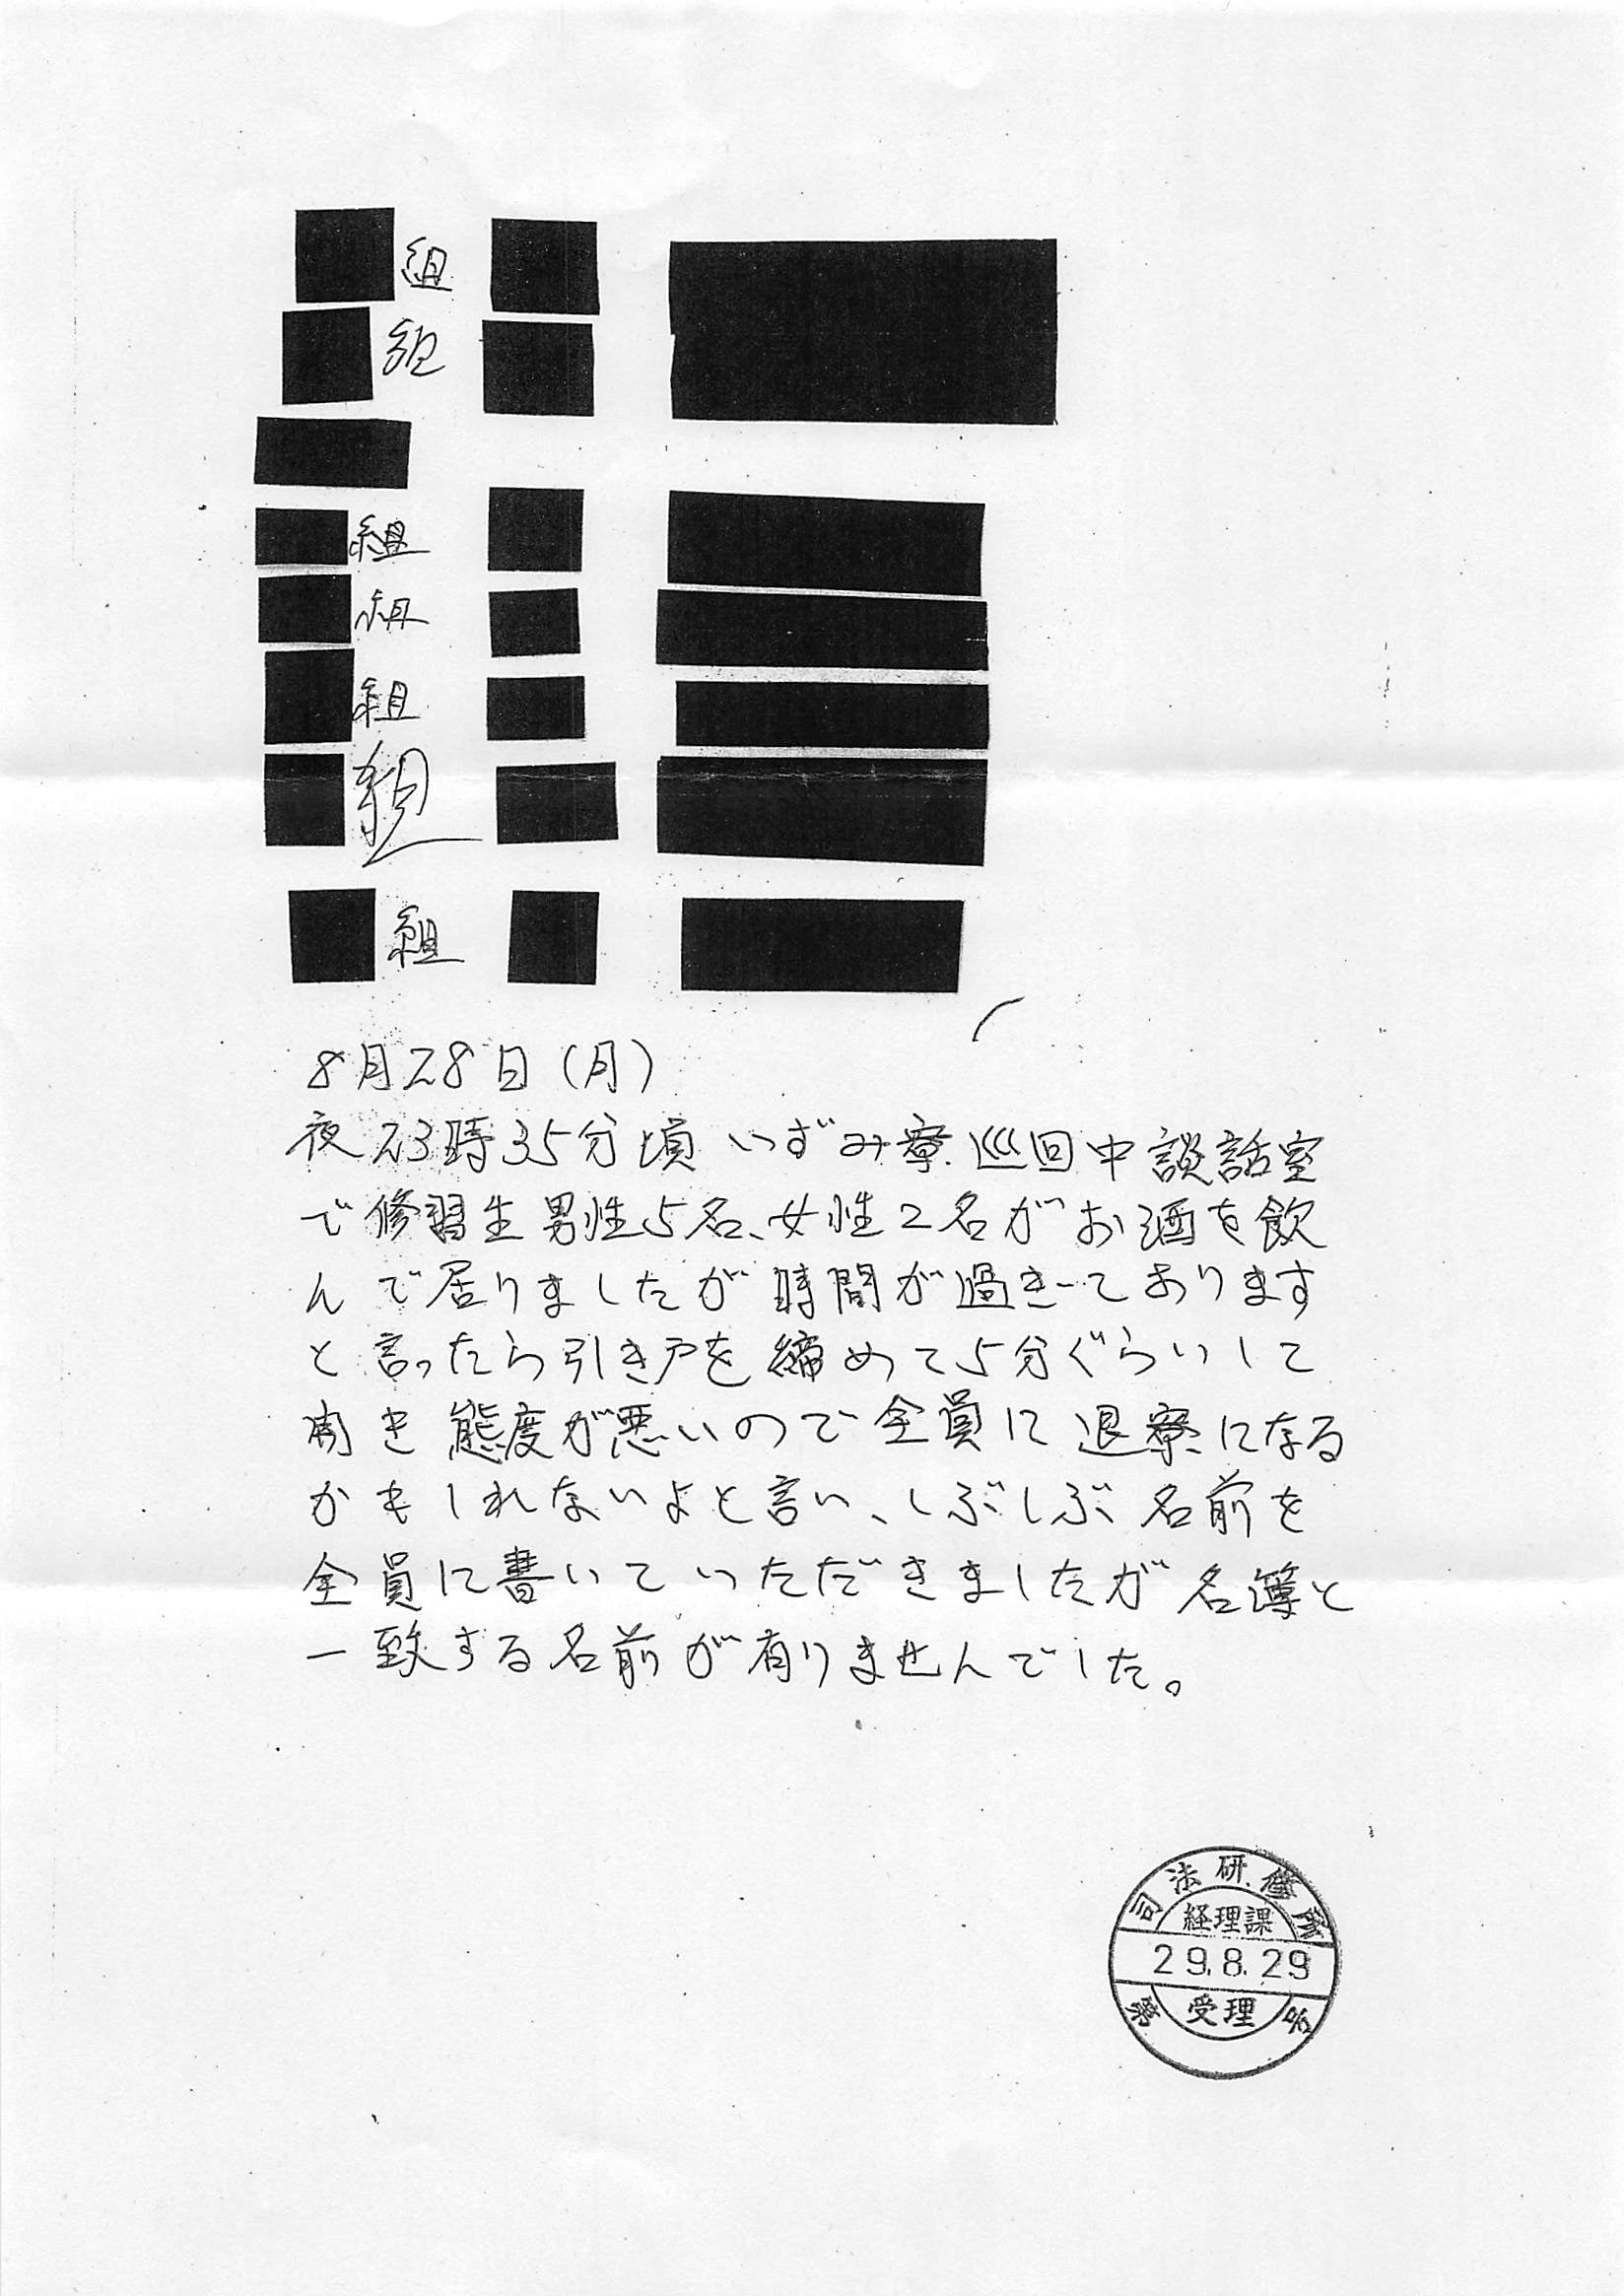 組
組
組
組
組
組
組
8月28日(月)
夜23時35分頃いずみ寮巡回中談話室
で修習生男性5名、女性2名がお酒を飲
んで居りましたが時間が過ぎております
と言ったら引き戸を締めて5分ぐらいして
開き態度が悪いので全員に退寮になる
かもしれないよと言い、しぶしぶ名前を
全員に書いていただきましたが名簿と
一致する名前が有りませんでした。
司法研修所
経理課
29.8.29
受理
第 号